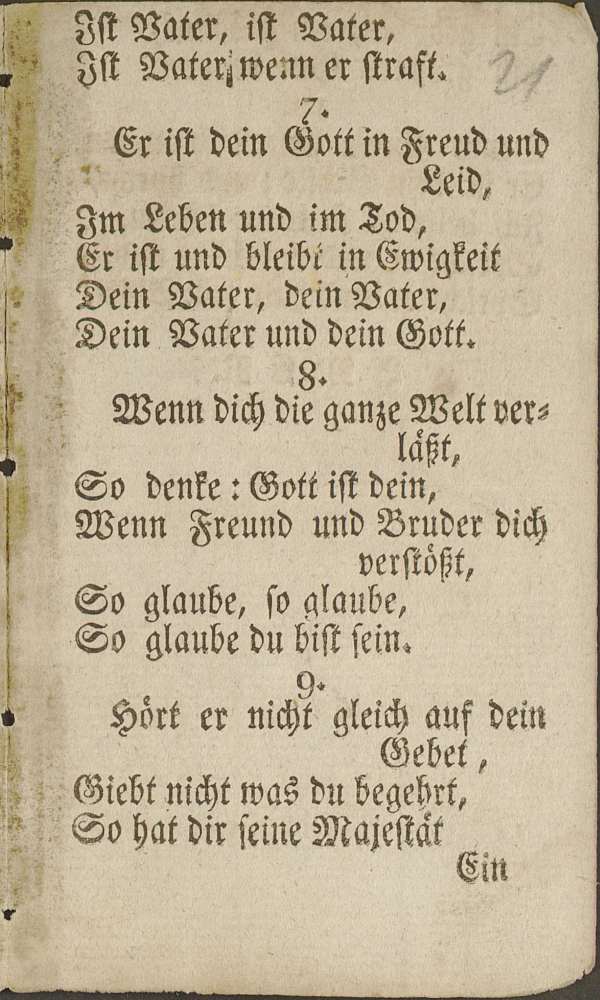 Ist Vater, ist Vater,
Ist Vater, wenn er straft.
21
7.
Er ist dein Gott in Freud und
Leid,
Im Leben und im Tod,
Er ist und bleibt in Ewigkeit
Dein Vater, dein Vater,
Dein Vater und dein Gott.
8.
Wenn dich die ganze Welt ver-
läßt,
So denke: Gott ist dein,
Wenn Freund und Bruder dich
verstößt,
So glaube, so glaube,
So glaube du bist sein.
9.
Hört er nicht gleich auf dein
Gebet,
Giebt nicht was du begehrt,
So hat dir seine Majestät
Ein